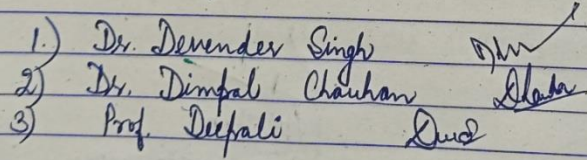 1.) Dr. Devender Singh
2) Dr. Dimpal Chauhan
3) Prof. Deepali